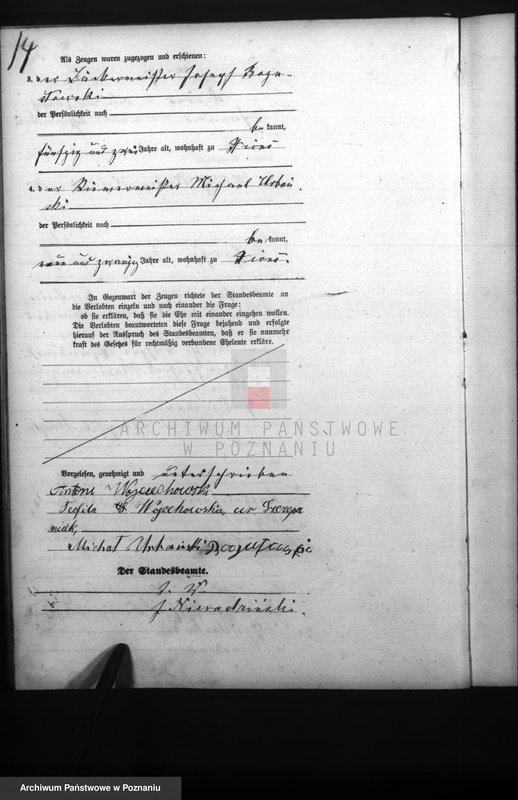 14
Als Zeugen waren zugezogen und erschienen:
3. der Bäckermeister Joseph Bogu-
sławski
der Persönlichkeit nach
be kannt,
fünfzig und zwei Jahre alt, wohnhaft zu
4. der Riemermeister Michael Urbań-
ski
der Persönlichkeit nach
be kannt,
neun und zwanzig Jahre alt, wohnhaft zu
In Gegenwart der Zeugen richtete der Standesbeamte an
die Verlobten einzeln und nach einander die Frage:
ob sie erklären, daß sie die Ehe mit einander eingehen wollen.
Die Verlobten beantworteten diese Frage bejahend und erfolgte
hierauf der Ausspruch des Standesbeamten, daß er sie nunmehr
kraft des Gesetzes für rechtmäßig verbundene Eheleute erkläre.
ARCHIWUM PAŃSTWOWE
W POZNANIU
Vorgelesen, genehmigt und unterschrieben
Antoni Wojciechowski
Teofila Wojciechowska, ur Grzego
niak,
Michał Urbański Bogusławski
Der Standesbeamte.
J. V.
J. Nieradziński.
Archiwum Państwowe w Poznaniu